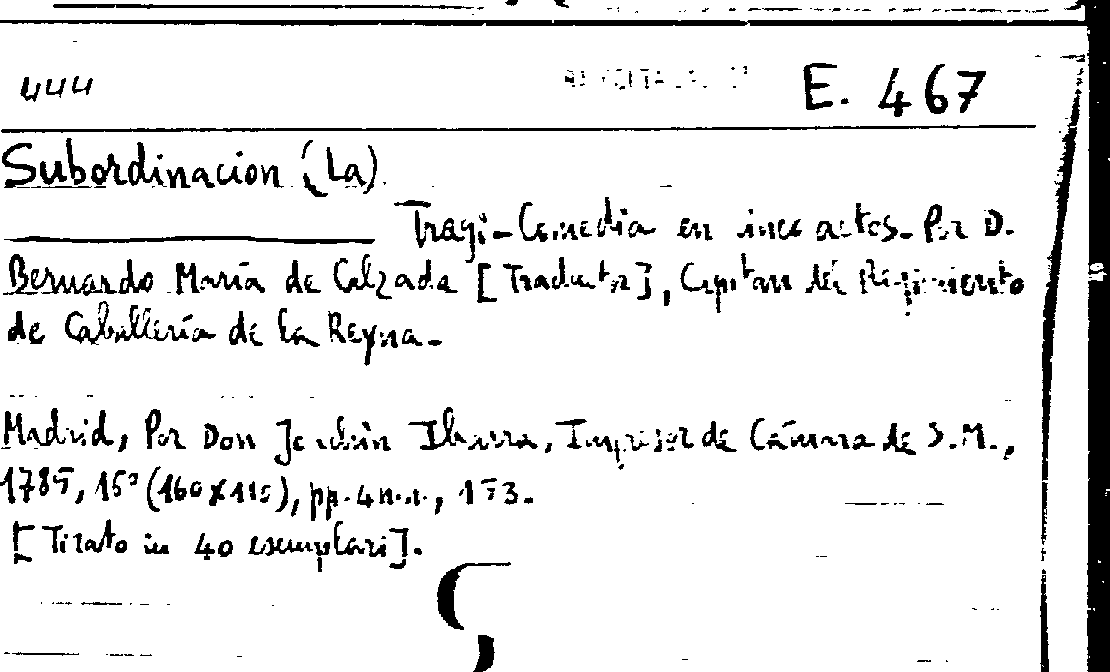 444 E. 467
Subordinacion (La)
Tragi-Comedia en cinco actos. Por D.
Bernardo María de Calzada [Traductor], Capitan del Regimiento
de Caballería de la Reyna.
Madrid, Por Don Joachin Ibarra, Impresor de Cámara de S.M.,
1785, 15° (160x115), pp. 4 n.n., 153.
[Tirato in 40 esemplari].